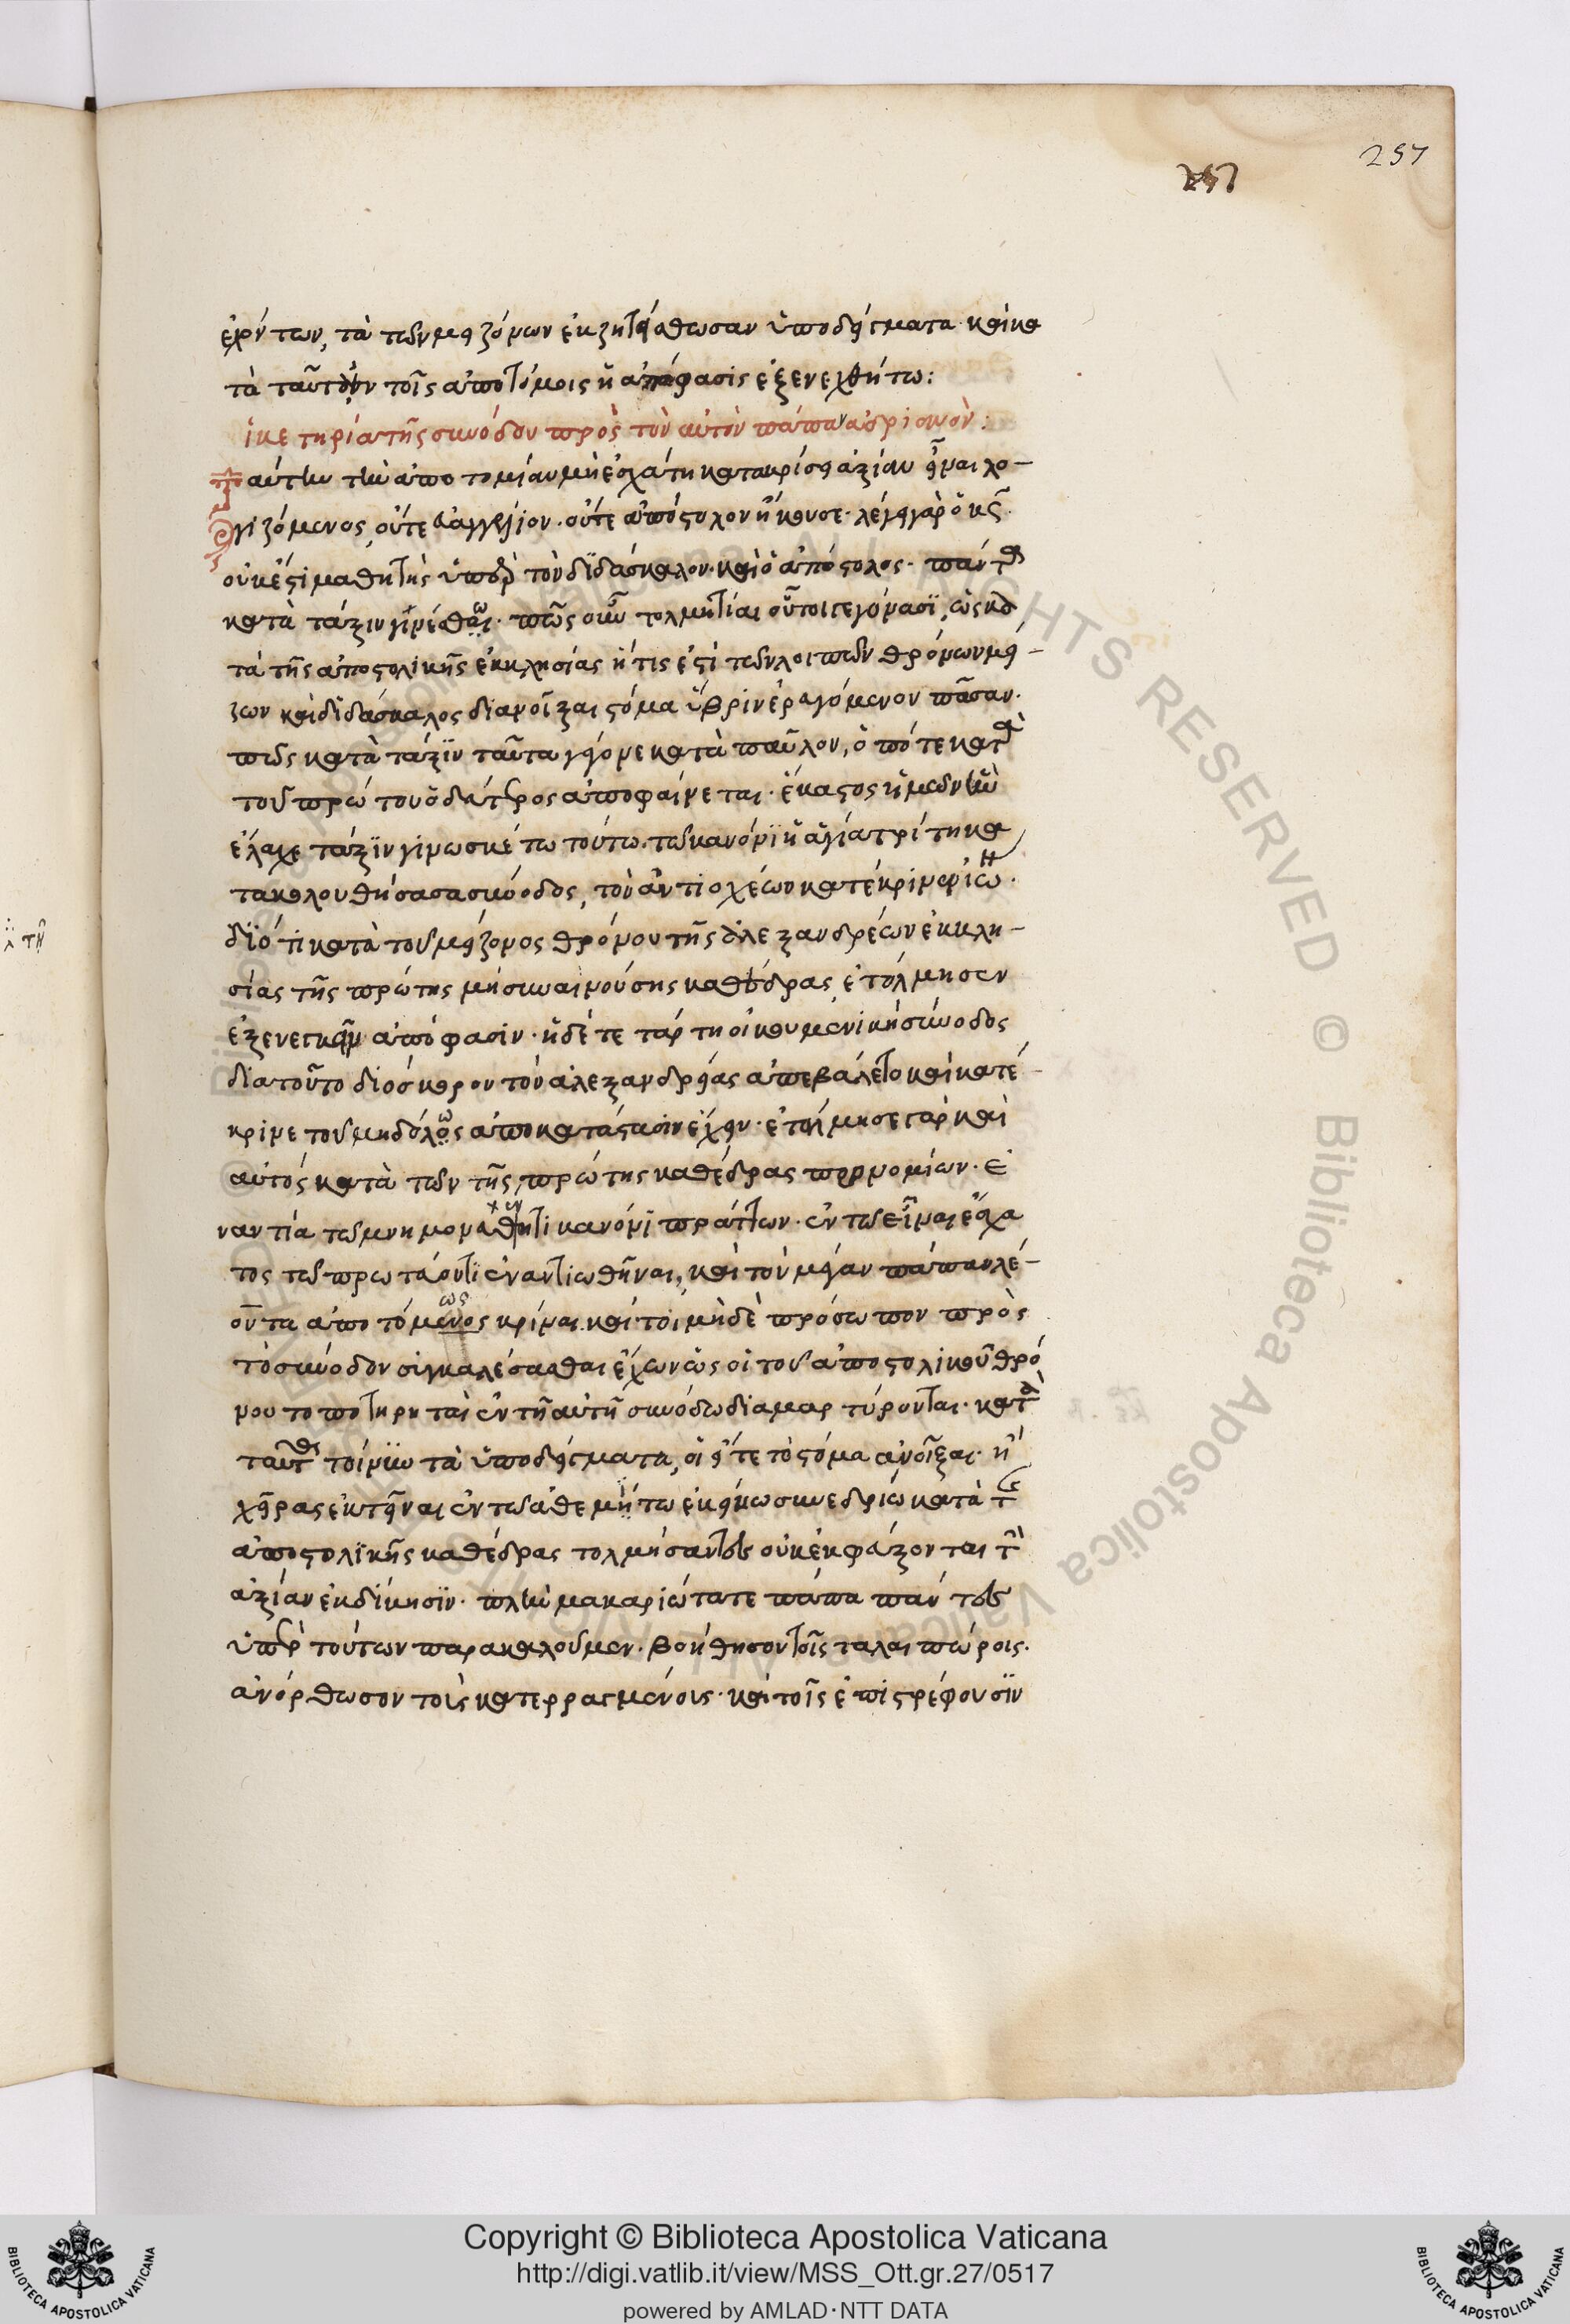 257
257
τῶν, τὰ τῶν μειζόνων ἐκζητείσθωσαν ὑποδείγματα· καὶ κα
τὰ ταῦτα τοῖς ἀποτόμοις ἡ ἀπόφασις ἐξενεχθήτω:
ἱκετηρία τῆς συνόδου πρὸς τὸν αὐτὸν πάπαν ἀδριανὸν:
αύτην τὴν ἀποτομίαν μὴ ἐσχάτη κατακρίσει ἀξίαν εἶναι λο-
γιζόμενος, οὔτε εὐαγγέλιον· οὔτε ἀπόστολον ἤκουσε· λέγει γὰρ ὁ κς·
οὐκ ἔστι μαθητὴς ὑπὲρ τὸν διδάσκαλον· καὶ ὁ ἀπόστολος· πάντα
κατὰ τάξιν γινέσθω· πῶς οὖν τολμητίαι οὗτοι γεγόνασι, ὡς κα
τὰ τῆς ἀποστολικῆς ἐκκλησίας ἥτις ἐστὶ τῶν λοιπῶν θρόνων μεί-
ζων καὶ διδάσκαλος διανοῖξαι στόμα ὕβριν ἐραγόμενον πᾶσαν·
πῶς κατὰ τάξιν ταῦτα γέγονε κατὰ παῦλον, ὁπότε κατὰ
τοῦ πρώτου ὁ δεύτερος ἀποφαίνεται· ἕκαστος ἡμῶν ἣν
ἔλαχε τάξιν γινωσκέτω τούτω· τῶ κανόνι ἡ ἁγία τρίτη κα
τακολουθήσασα σύνοδος, τὸν ἀντιοχέων κατέκρινεν
διότι κατὰ τοῦ μείζονος θρόνου τῆς ἀλεξανδρέων ἐκκλη-
σίας τῆς πρώτης μὴ συναινούσης καθέδρας, ἐτόλμησεν
ἐξενεγκεῖν ἀπόφασιν· ἡ δέ τετάρτη οἰκουμενικὴ σύνοδος
διατοῦτο διόσκορον τὸν ἀλεξανδρείας ἀπεβάλετο καὶ κατέ-
κρινε τοῦ μηδόλως ἀποκατάστασιν ἔχειν· ἐτόλμησε γὰρ καὶ
αὐτὸς κατὰ τῶν τῆς πρώτης καθέδρας προνομίων· ἐ
ναντία τῶ μνημονευθέντι κανόνι πράττων· ἐν τῶ εἶναι ἔσχα
τος τῶ πρωτεύοντι ἐναντιωθῆναι, καὶ τὸν μέγαν πάπαν λέ-
οντα ἀποτόμενος κρίναι· καίτοι μὴδὲ πρόσωπον πρὸς
ως
τὸ σύνοδον συγκαλέσασθαι ἔχων ὡς οἱ τοῦ ἀποστολικοῦ θρό
νου τοποτηρηταὶ ἐν τῆ αὐτῆ συνόδω διαμαρτύρονται· κατὰ
ταῦτα τοίνυν τὰ ὑποδείγματα, οἵ εἴτε τὸ στόμα ἀνοῖξαι· ἢ
χεῖρας ἐκτεῖναι ἐν τῶ ἀθεμήτω ἐκείνω συνεδρίω κατὰ τῆς
ἀποστολικῆς καθέδρας τολμήσαντες οὐκ ἐκφεύξονται τὴν
ἀξίαν ἐκδίκησιν· πλὴν μακαριώτατε πάπα πάντες
ὑπὲρ τούτων παρακαλοῦμεν· βοήθησον τοῖς ταλαιπώροις·
ἀνόρθωσον τοὺς κατερραγμένους· καὶ τοῖς ἐπιστρέφουσιν
Copyright © Biblioteca Apostolica Vaticana
http://digi.vatlib.it/view/MSS_Ott.gr.27/0517
powered by AMLAD·NTT DATA
BIBLIOTECA APOSTOLICA VATICANA
BIBLIOTECA APOSTOLICA VATICANA